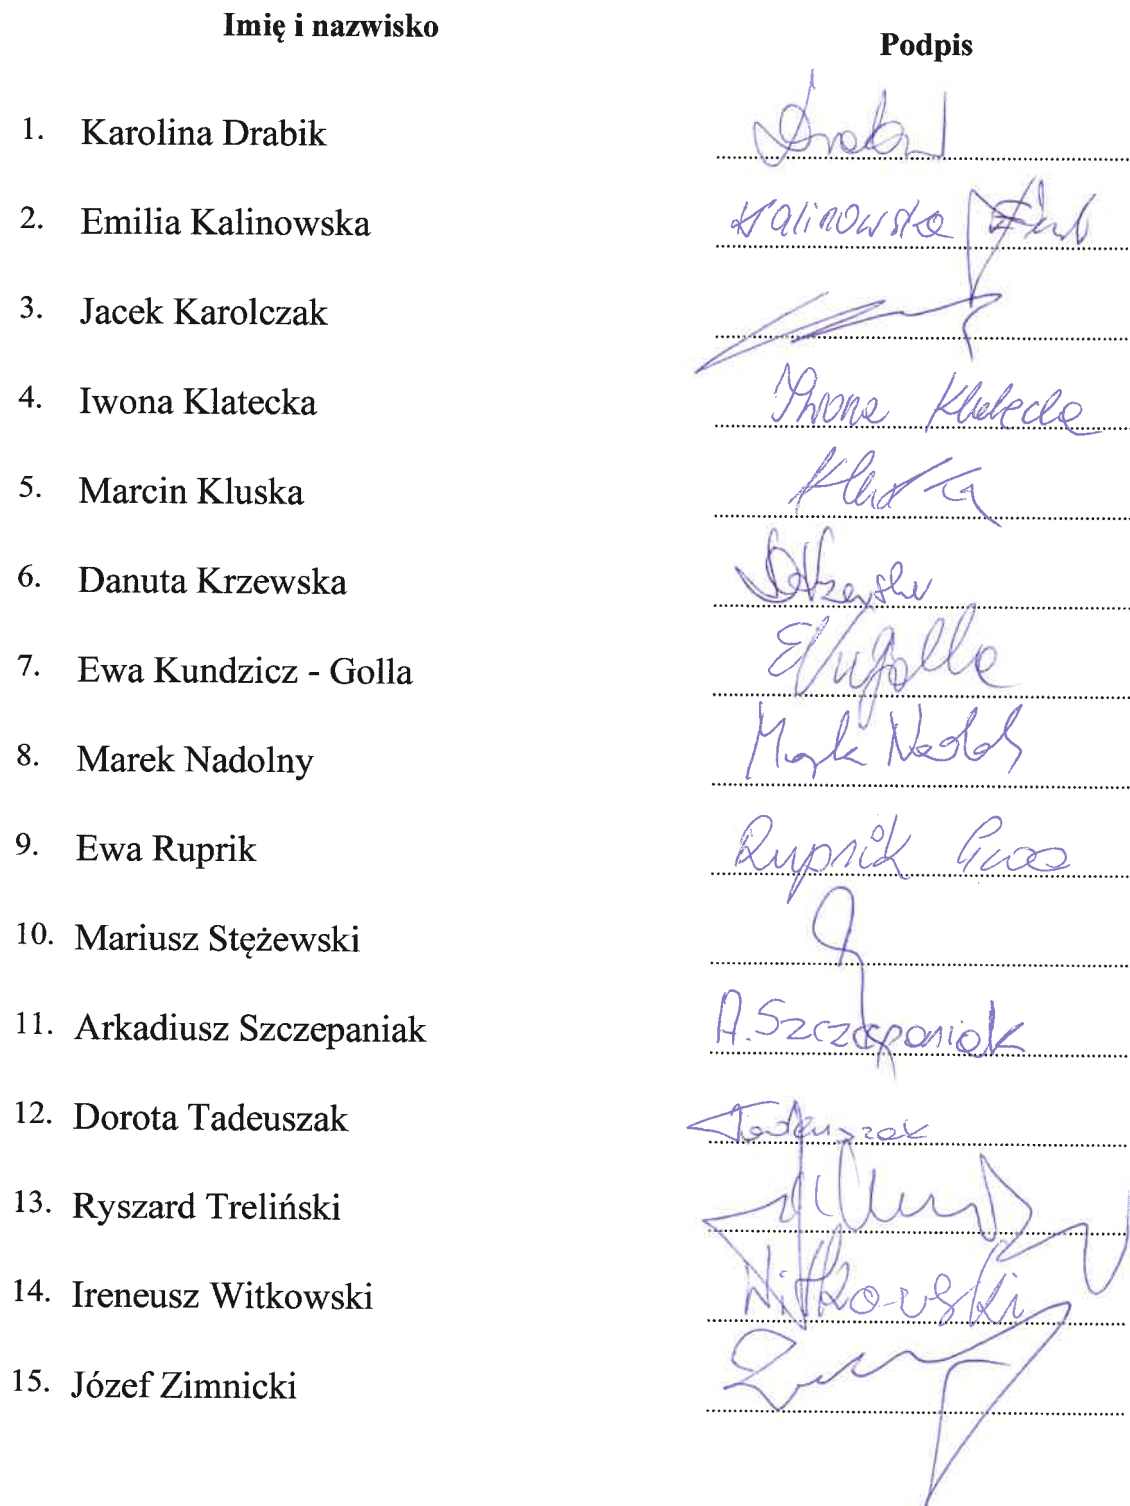 Imię i nazwisko
Podpis
1. Karolina Drabik
2. Emilia Kalinowska Kalinowska
3. Jacek Karolczak
4. Iwona Klatecka Iwona Klatecka
5. Marcin Kluska Kluska
6. Danuta Krzewska
7. Ewa Kundzicz - Golla
8. Marek Nadolny
9. Ewa Ruprik Ruprik Ewa
10. Mariusz Stężewski
11. Arkadiusz Szczepaniak A. Szczepaniak
12. Dorota Tadeuszak Tadeuszak
13. Ryszard Treliński
14. Ireneusz Witkowski Witkowski
15. Józef Zimnicki